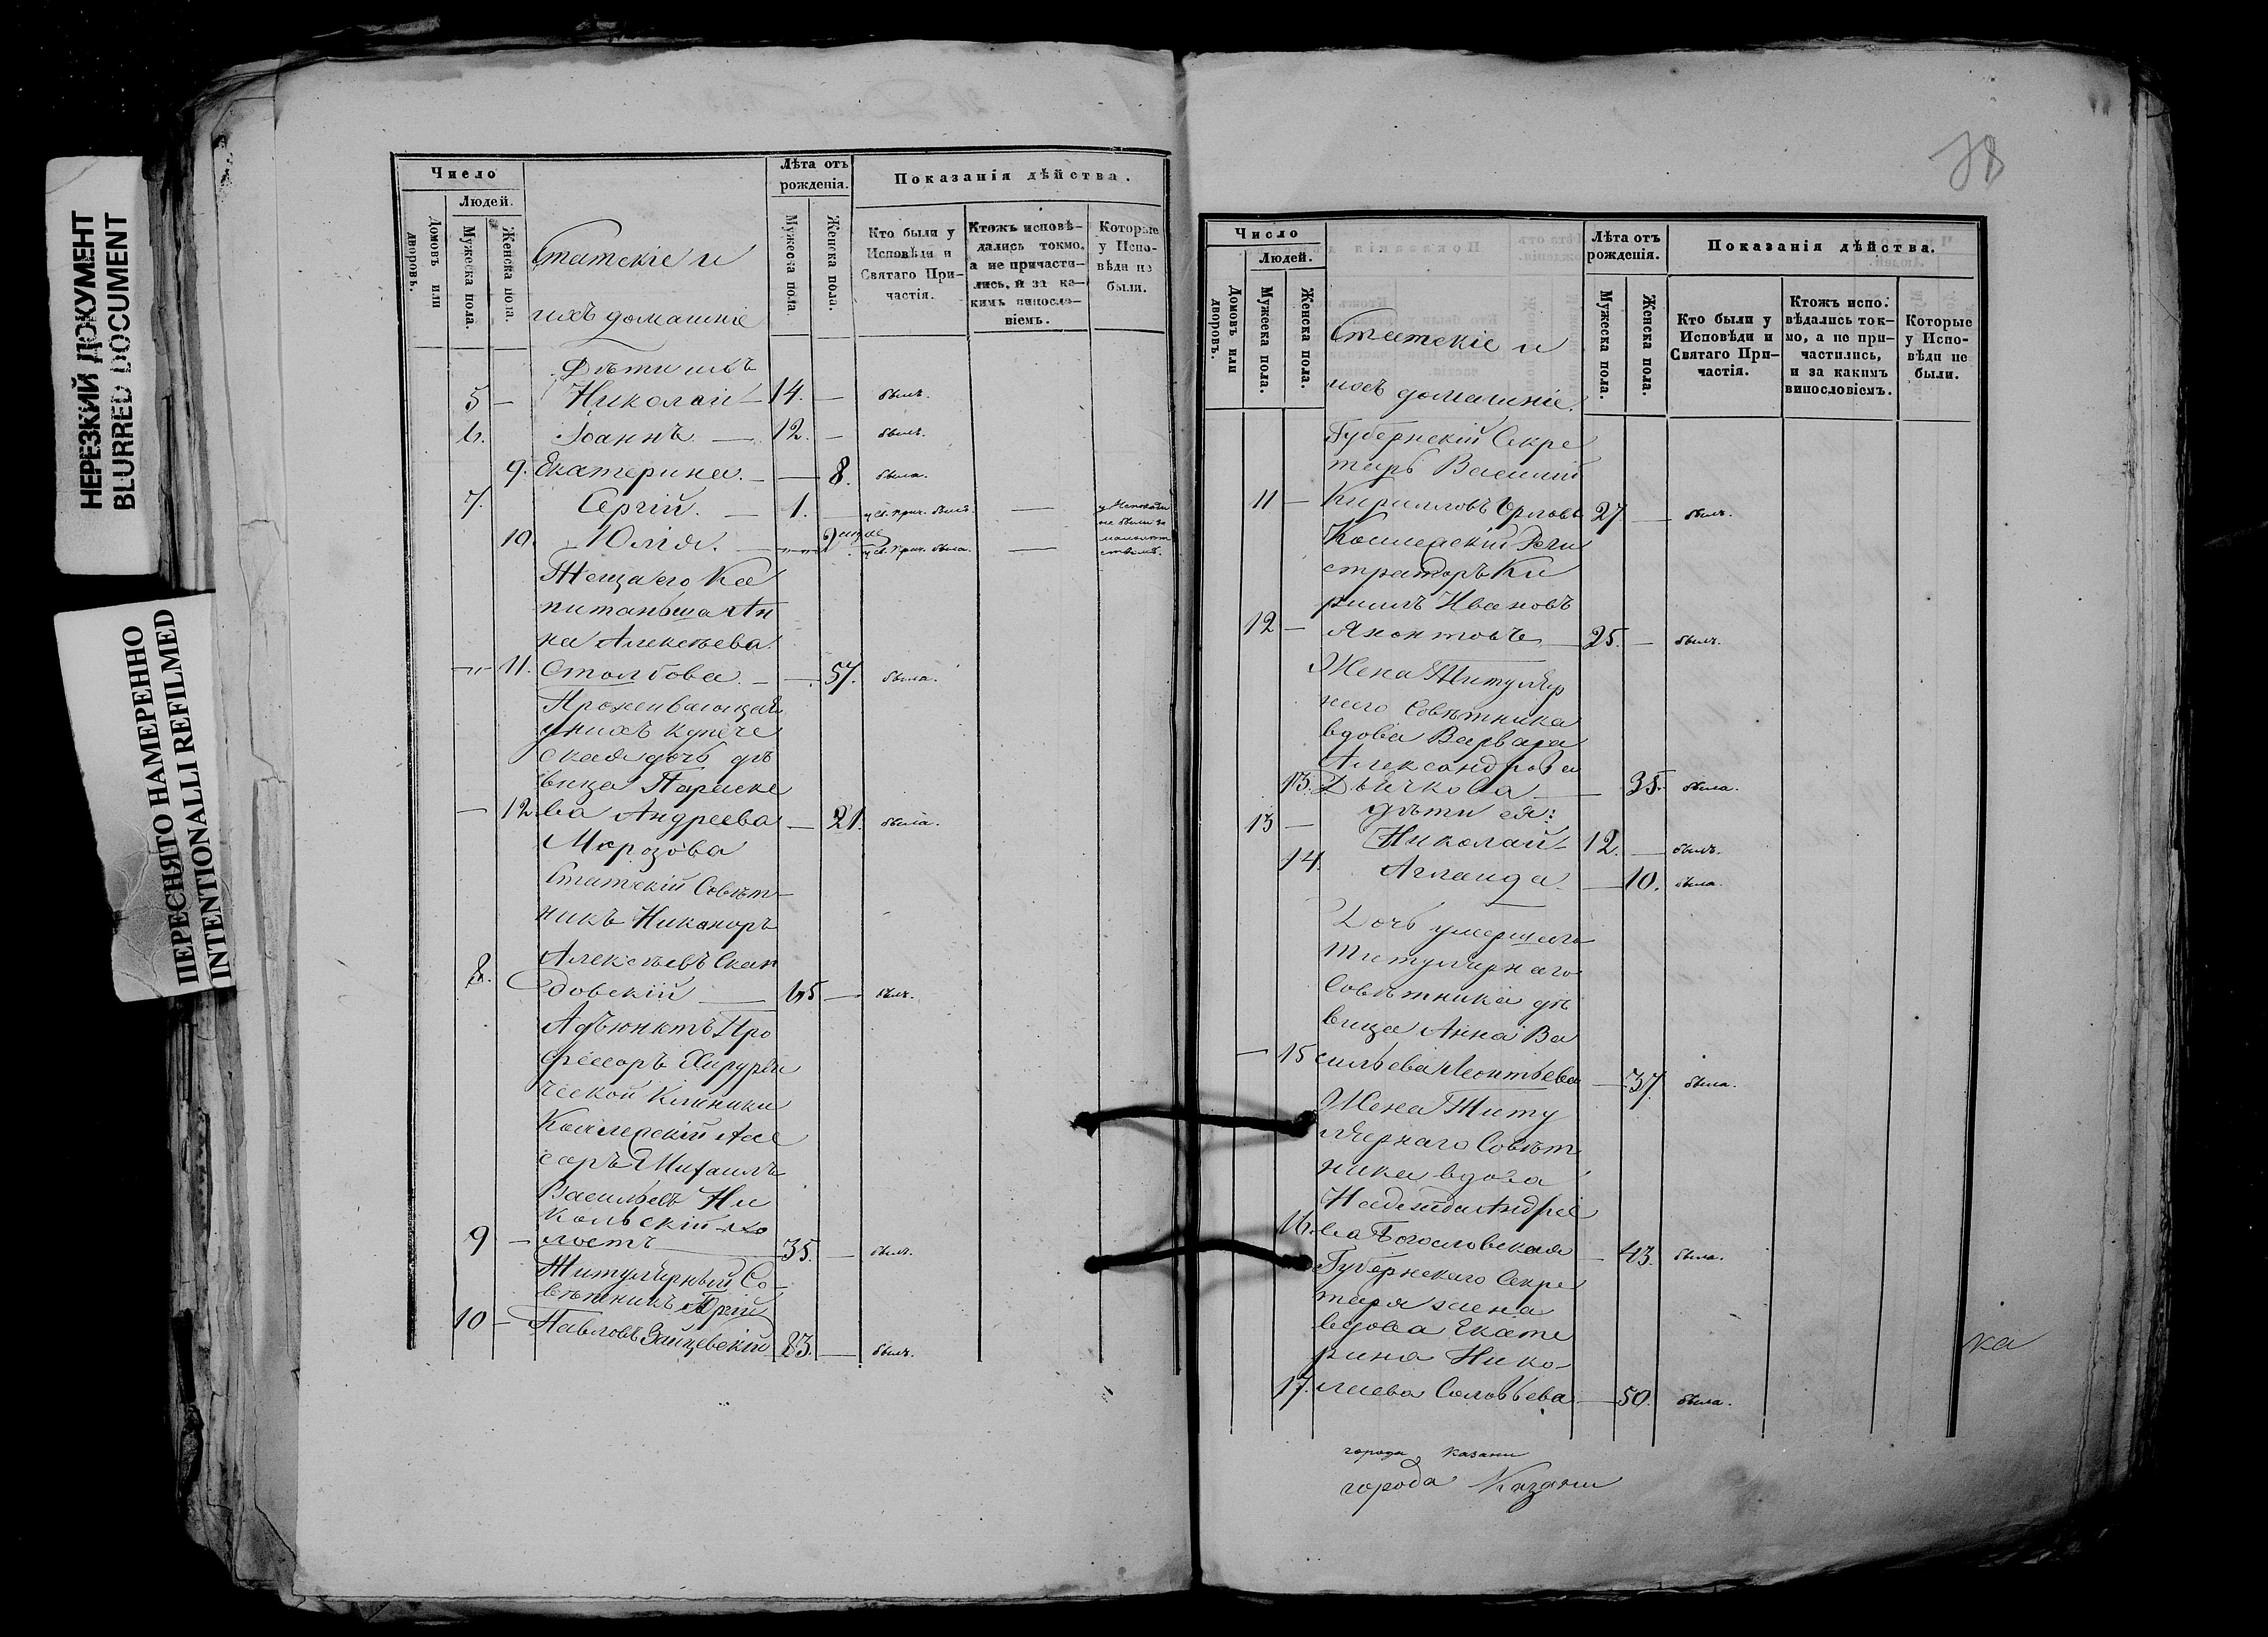 НЕРЕЗКИЙ ДОКУМЕНТ
BLURRED DOCUMENT
ПЕРЕСНЯТО НАМЕРЕННО
INTENTIONALLI REFILMED
Число
Людей.
Домовъ или дворовъ.
Мужеска пола.
Женска пола.
Статскіе и
ихъ домашніе
Лѣта отъ
рожденія.
Мужеска пола.
Женска пола.
Показанія дѣйства.
Кто были у
Исповѣди и
Святаго При-
частія.
Ктожъ исповѣ-
дались токмо,
а не причасти-
лись, и за ка-
кимъ винослo-
віемъ.
Которые
у Испо-
вѣди не
были.
Дѣти ихъ
5 — Николай — 14. — былъ.
6. Іоаннъ — 12. — былъ.
9. Екатерина. — — 8. была.
7. Сергій. — 1. — у Св. Прич. былъ. — у Исповѣди
не были за
10. Юлія. — у Св. Прич. была. — малолѣт
ствомъ.
Теща его Ка
питанша Ан
на Алексѣева
11. Столбова. — — 57. была.
Проживающая
у нихъ купече
ская дочь дѣ
вица Параске
— 12. ва Андреева — 21. была.
Морозова
Статскій Совѣт-
никъ Никаноръ
Алексѣевъ Скан
8. довскій — 65 — былъ.
Адъюнктъ Про
фессоръ Хирурги
ческой Клиники
Коллежскій Асе
соръ Михаилъ
Васильевъ Ни
кольскій хо
9 — лостъ — 35. — былъ.
Титулярный Со-
вѣтникъ Юрій
10 — Павловъ Зайцевскій 83. — былъ.
78
Число
Людей.
Домовъ или дворовъ.
Мужеска пола.
Женска пола.
Статскіе и
ихъ домашніе.
Лѣта отъ
рожденія.
Мужеска пола.
Женска пола.
Показанія дѣйства.
Кто были у
Исповѣди и
Святаго При-
частія.
Ктожъ испо-
вѣдались ток-
мо, а не при-
частились,
и за какимъ
винословіемъ.
Которые
у Испо-
вѣди не
были.
Губернскій Секре
тарь Василій
11 — Кирилловъ Орловъ 27 — былъ.
Коллежскій Реги
страторъ Ки
риллъ Ивановъ
12 — Яхонтовъ — 25. — былъ.
Жена Титуляр
наго Совѣтника
вдова Варвара
Александрова
13. Дьячкова — 35. была.
дѣти ея:
13 — Николай — 12. — былъ.
14. Аглаида — 10. была.
Дочь умершаго
Титулярнаго
Совѣтника дѣ
вица Анна Ва
— 15 сильева Леонтьева — 37. была.
Жена Титу
лярнаго Совѣт
ника вдова
Надежда Андрее
16. ва Богословская — 43. была.
Губернскаго Секре
таря жена
вдова Екате
рина Нико-
17. лаева Соловьева — 50. была.
ка
города Казани
города Казани